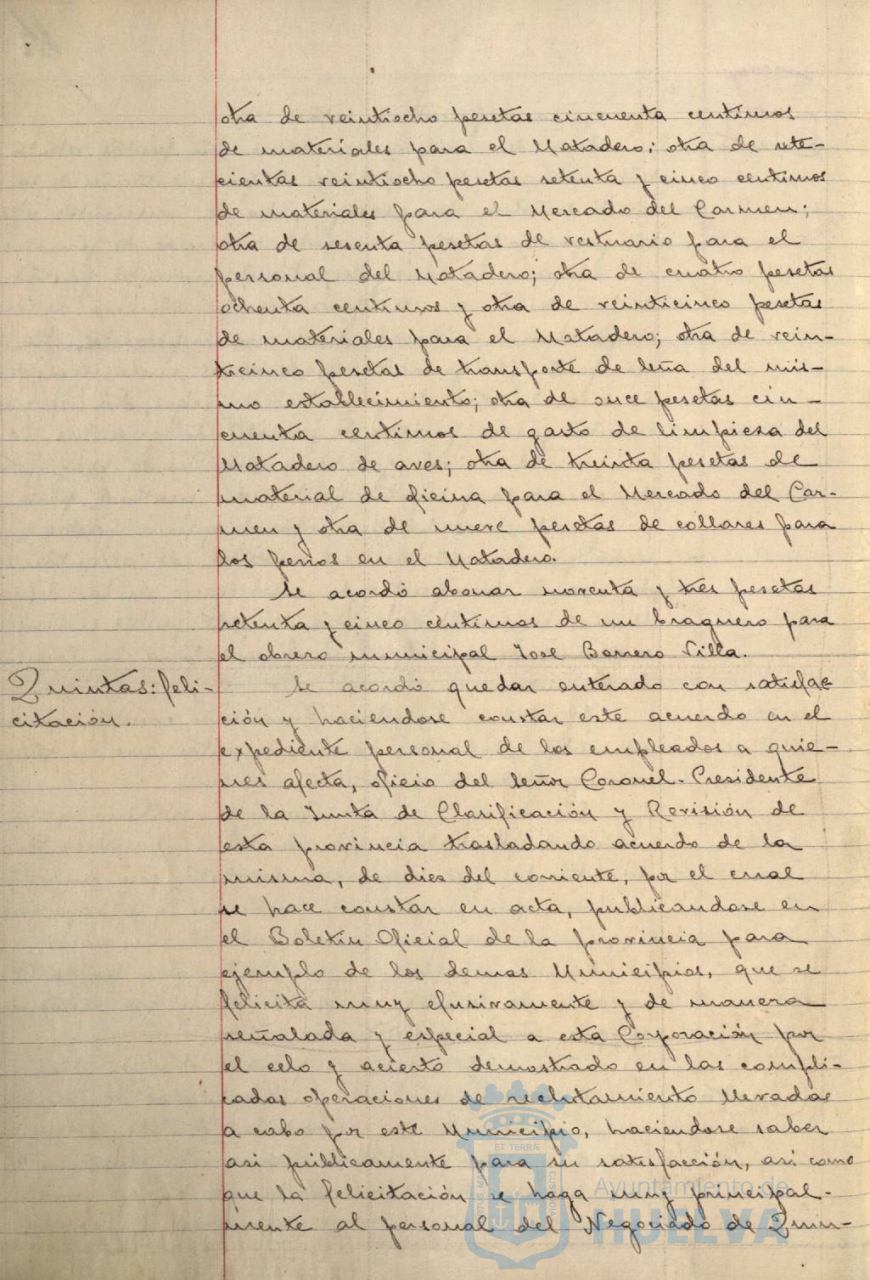 otra de veintiocho pesetas cincuenta centimos
de materiales para el Matadero; otra de sete-
cientas veintiocho pesetas setenta y cinco centimos
de materiales para el Mercado del Carmen;
otra de sesenta pesetas de vestuario para el
personal del Matadero; otra de cuatro pesetas
ochenta centimos y otra de veinticinco pesetas
de materiales para el Matadero; otra de vein-
ticinco pesetas de transporte de leña del mis-
mo establecimiento; otra de once pesetas cin-
cuenta centimos de gasto de limpieza del
Matadero de aves; otra de treinta pesetas de
material de oficina para el Mercado del Car-
men y otra de nueve pesetas de collares para
los perros en el Matadero.
Se acordó abonar noventa y tres pesetas
setenta y cinco centimos de un braguero para
el obrero municipal José Borrero Villa.
Quintas: feli-
citación.
Se acordó quedar enterado con satisfac-
ción y haciendose constar este acuerdo en el
expediente personal de los empleados a quie-
nes afecta, oficio del Señor Coronel-Presidente
de la Junta de Clasificación y Revisión de
esta provincia trasladando acuerdo de la
misma, de diez del corriente, por el cual
se hace constar en acta, publicandose en
el Boletin Oficial de la provincia para
ejemplo de los demas Municipios, que se
felicita muy efusivamente y de manera
señalada y especial a esta Corporación por
el celo y acierto demostrado en las compli-
cadas operaciones de reclutamiento llevadas
a cabo por este Municipio, haciendose saber
asi públicamente para su satisfacción, así como
que la felicitación se haga muy principal-
mente al personal del Negociado de Quin-
ET TERRÆ
Ayuntamiento de
HUELVA